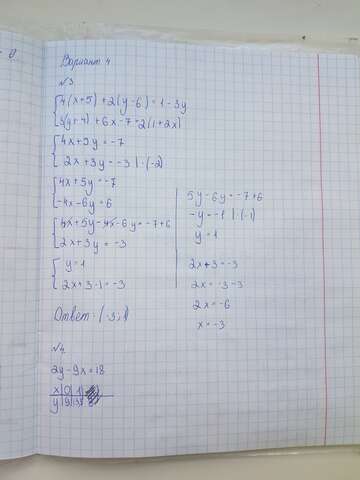 Вариант 4
№3
4(x+5)+2(y-6)=1-3y
4(y+4)+6x-7=2(1+2x)
4x+5y=-7
2x+3y=-3 | ·(-2)
4x+5y=-7
-4x-6y=6
4x+5y-4x-6y=-7+6
2x+3y=-3
y=1
2x+3·1=-3
5y-6y=-7+6
-y=-1 | (-1)
y=1
2x+3=-3
2x=-3-3
2x=-6
x=-3
Ответ: (-3;1)
№4
2y-9x=18
x|0|1|
y|9|13,5|